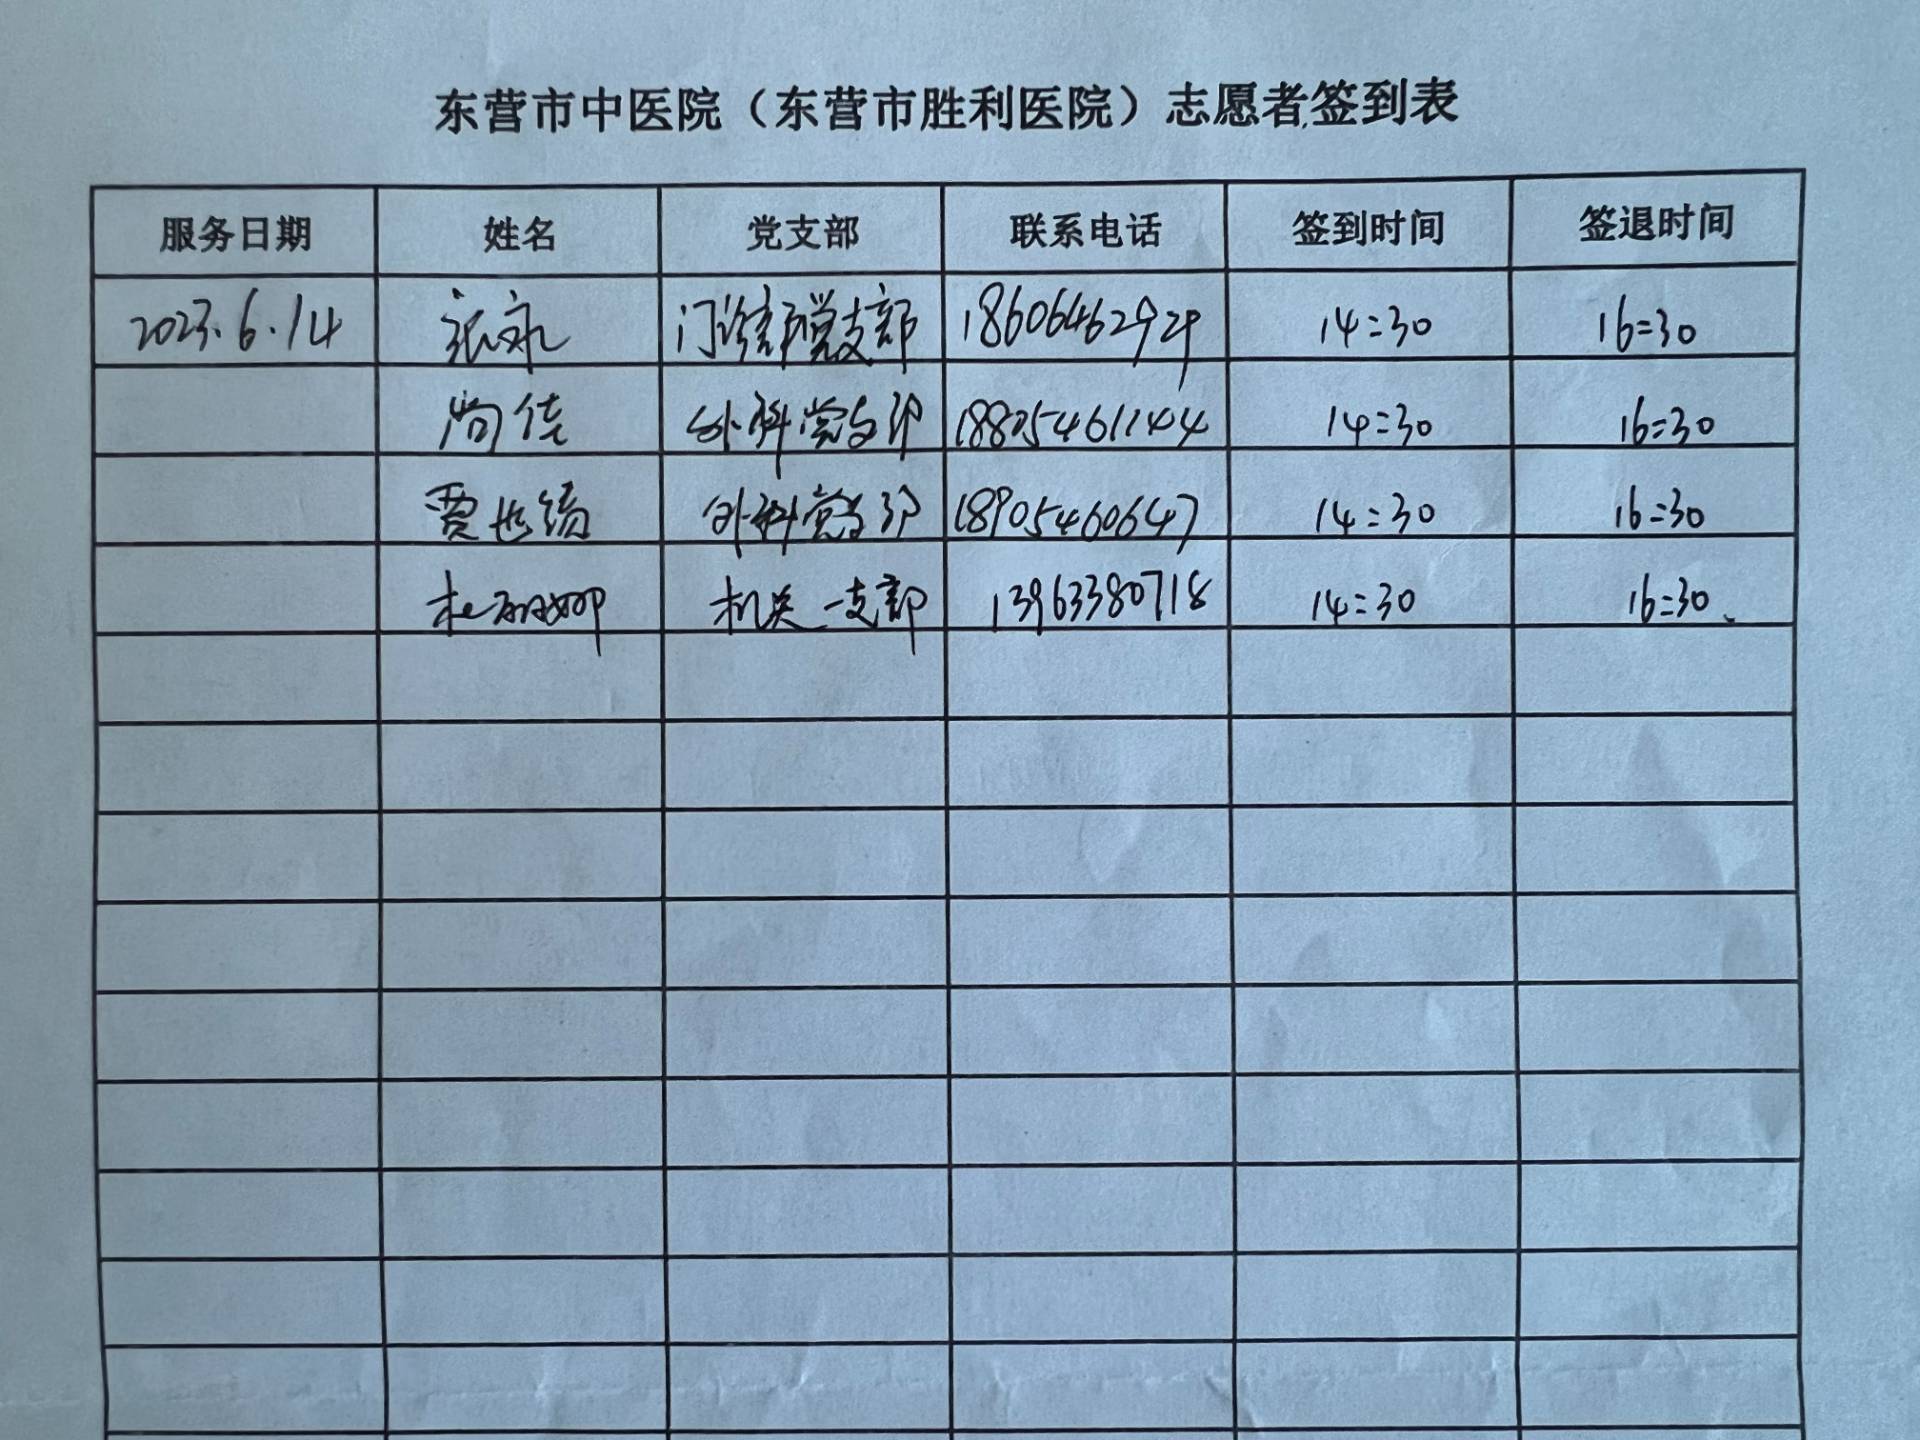 东营市中医院（东营市胜利医院）志愿者签到表
服务日期 姓名 党支部 联系电话 签到时间 签退时间
2023.6.14 张永 门诊部党支部 18606462929 14:30 16:30
尚佳 外科党支部 18805461144 14:30 16:30
贾世绮 外科党支部 18905460647 14:30 16:30
杜丽娜 机关一支部 13963380718 14:30 16:30